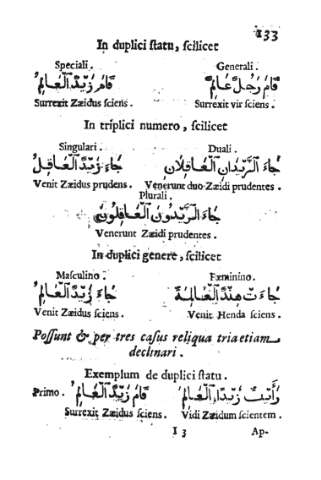 133
In duplici statu, scilicet
Speciali. Generali.
قَامَ زَيْدٌ الْعَالِمُ قَامَ رَجُلٌ عَالِمٌ
Surrexit Zæidus sciens. Surrexit vir sciens.
In triplici numero, scilicet
Singulari. Duali.
جَاءَ زَيْدٌ الْعَاقِلُ جَاءَ الزَّيْدَانِ الْعَاقِلَانِ
Venit Zæidus prudens. Venerunt duo Zæidi prudentes.
Plurali.
جَاءَ الزَّيْدُونَ الْعَاقِلُونَ
Venerunt Zæidi prudentes.
In duplici genere, scilicet
Masculino. Fæminino.
جَاءَ زَيْدٌ الْعَالِمُ جَاءَتْ هِنْدٌ الْعَالِمَةُ
Venit Zæidus sciens. Venit Henda sciens.
Possunt & per tres casus reliqua tria etiam
declinari.
Exemplum de duplici statu.
Primo. قَامَ زَيْدٌ الْعَالِمُ رَأَيْتُ زَيْدًا الْعَالِمَ
Surrexit Zæidus sciens. Vidi Zæidum scientem.
I 3 Ap-